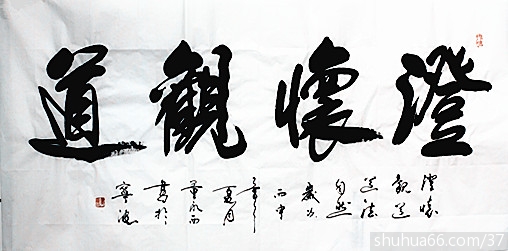 澄懷觀道
澄懷
觀道
道法
自然
歲次
丙申
夏月
書於
寧波
shuhua66.com/37